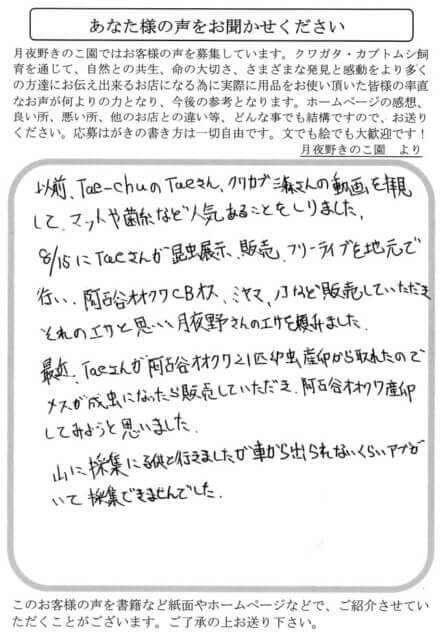 あなた様の声をお聞かせください
月夜野きのこ園ではお客様の声を募集しています。クワガタ・カブトムシ飼
育を通じて、自然との共生、命の大切さ、さまざまな発見と感動をより多く
の方達にお伝え出来るお店になる為に実際に用品をお使い頂いた皆様の率直
なお声が何よりの力となり、今後の参考となります。ホームページの感想、
良い所、悪い所、他のお店との違い等、どんな事でも結構ですので、お送り
ください。応募はがきの書き方は一切自由です。文でも絵でも大歓迎です！
月夜野きのこ園 より
以前、Tae-chuのTaeさん、クワカブ三森さんの動画を観
して、マットや菌糸など人気あることをしりました。
8/15にTaeさんが昆虫展示、販売、フリーライブを地元で
行い、阿古谷オオクワCBオス、ミヤマ、ノコなど販売していただき
それのエサと思い、月夜野さんのエサを頼みました。
最近、Taeさんが阿古谷オオクワ21匹幼虫産卵から取れたので
メスが成虫になったら販売していただき、阿古谷オオクワ産卵
してみようと思いました。
山に採集に子供と行きましたが車から出られないくらいアブが
いて採集できませんでした。
このお客様の声を書籍など紙面やホームページなどで、ご紹介させてい
ただくことがございます。ご了承の上お送り下さい。